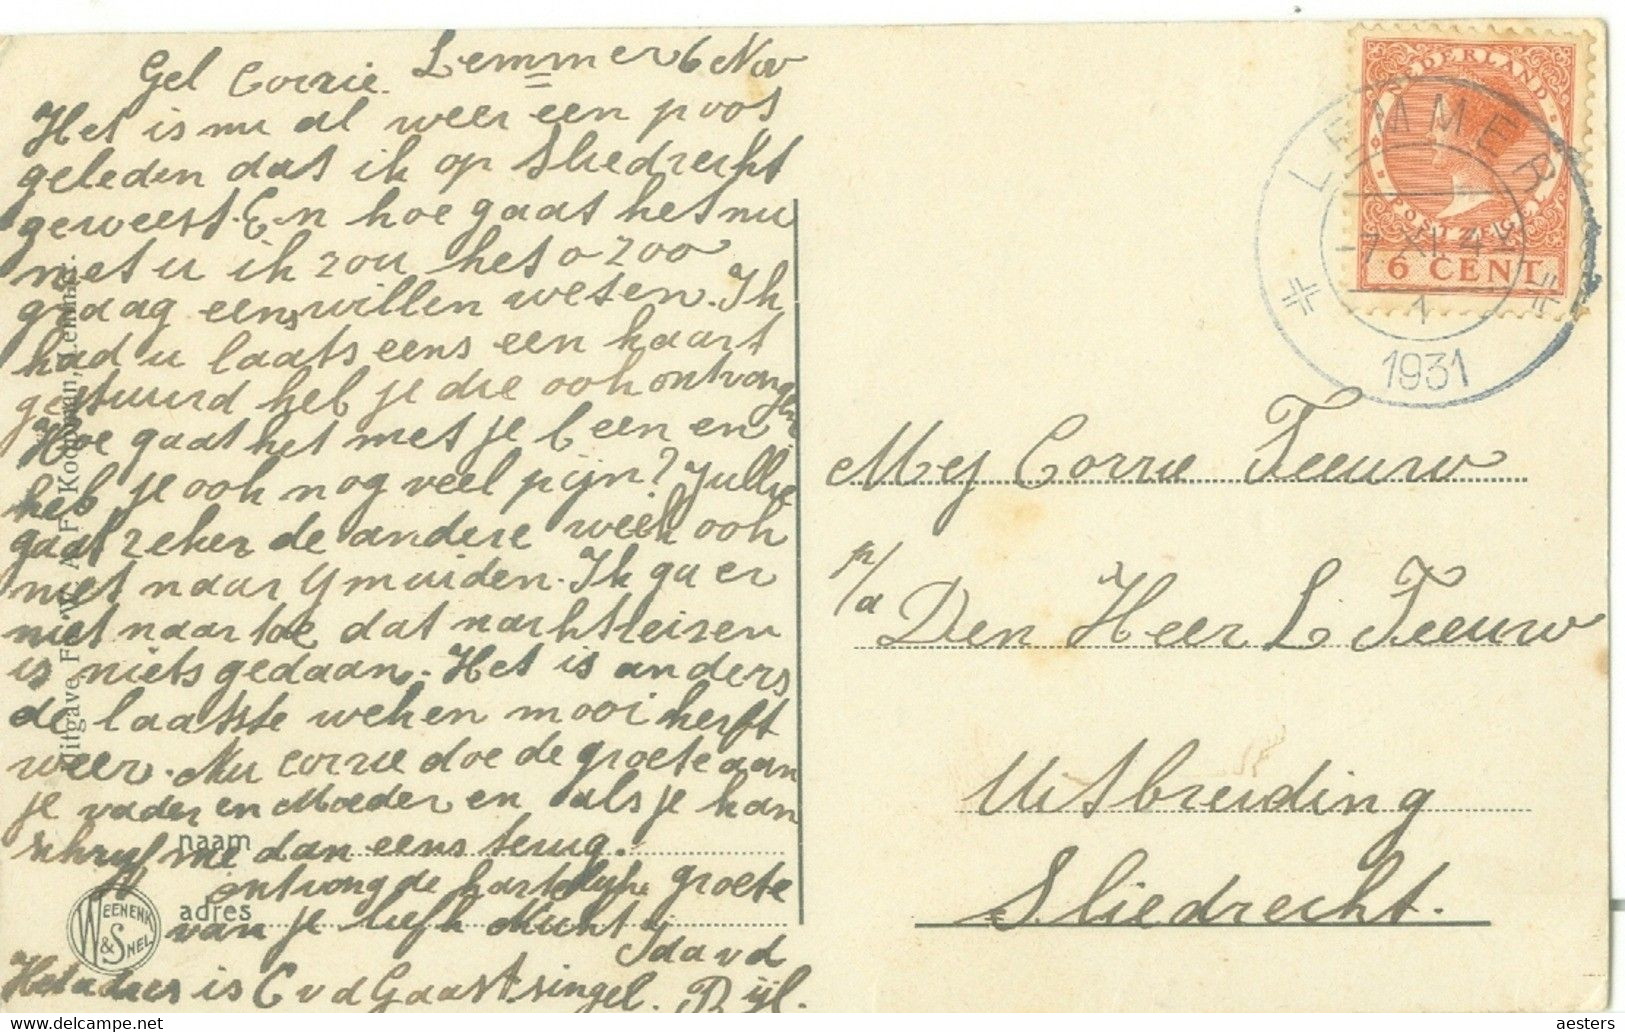 Lemmer 6 Nov
Gel Corrie.
Het is nu al weer een poos
geleden dat ik op Sliedrecht
geweest. En hoe gaat het nu
met u ik zou het o zoo
graag eens willen weten. Ik
had u laatst eens een kaart
gestuurd heb je die ook ontvangen
Hoe gaat het met je been en
heb je ook nog veel pijn? Jullie
gaat zeker de andere week ook
niet naar Ymuiden. Ik ga er
niet naar toe dat nachtreisen
is niets gedaan. Het is anders
de laatste weken mooi herfst
weer. Nu Corrie doe de groete aan
je vader en Moeder en als je kan
schryf me dan eens terug.
ontvang de hartelyke groete
van je liefh Nicht
Ida v d
Rijl.
Het adres is C v d Gaastsingel.
naam
adres
WEENENK & SNEL
Uitgave Fa. W. A. F. Kooyman, Lemmer.
NEDERLAND
POSTZEGEL
6 CENT
LEMMER
-7 XI 4
1
1931
Mej Corrie Teeuw
p/a Den Heer L Teeuw
Uitbreiding
Sliedrecht.
aesters